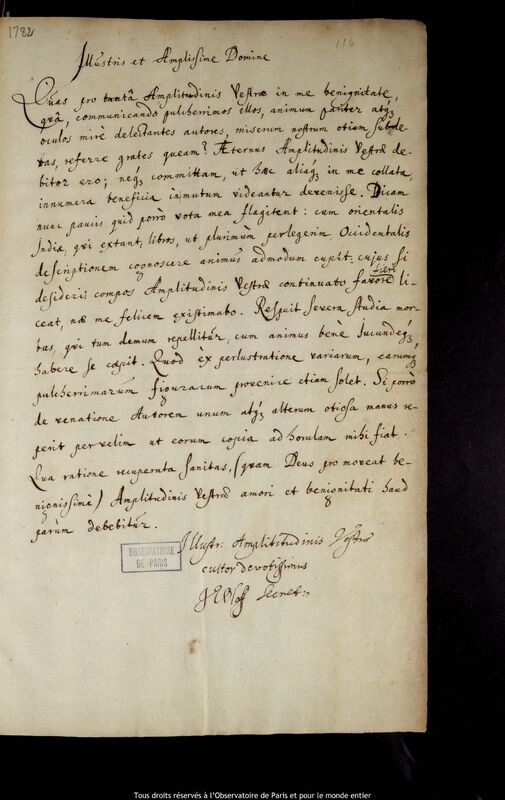 1782
116
Illustris et Amplissime Domine
Quas pro tanta Amplitudinis Vestræ in me benignitate,
quâ, communicando pulcherrimos ellos, animum pariter atq;
oculos mirè delectantes autores, miserum nostrum otium
tas, referre grates queam? Æternus Amplitudinis Vestræ de-
bitor ero; neq; committam, ut hæc aliaq; in me collata,
innumera beneficia inmutum videantur devenisse. Dicam
nunc paucis quid porrò vota mea flagitent: cum orientalis
Indiæ, qui extant, libros, ut plurimùm perlegerim Occidentalis
descriptionem cognoscere animus admodum cupit: cujus si
desiderii compos Amplitudinis Vestræ continuato favore fieri li-
ceat, næ me felicem existimabo. Respuit severa studia mor-
bus, qui tum demum repellitur, cum animus benè jucundeq;
habere se cœpit. Quod ex perlustratione variarum, earumq;
pulcherrimarum figurarum provenire etiam solet. Si porrò
de venatione Autorem unum atq; alterum otiosa manus re-
perit pervelim ut eorum copia ad horulam mihi fiat.
Qua ratione recuperata sanitas, (quam Deus promoveat be-
nignissimè) Amplitudinis Vestræ amori et benignitati haud
parùm debebitur.
Illustr: Amplitudinis Vestræ
cultor devotissimus
Secret:
OBSERVATOIRE
DE PARIS
Tous droits réservés à l'Observatoire de Paris et pour le monde entier